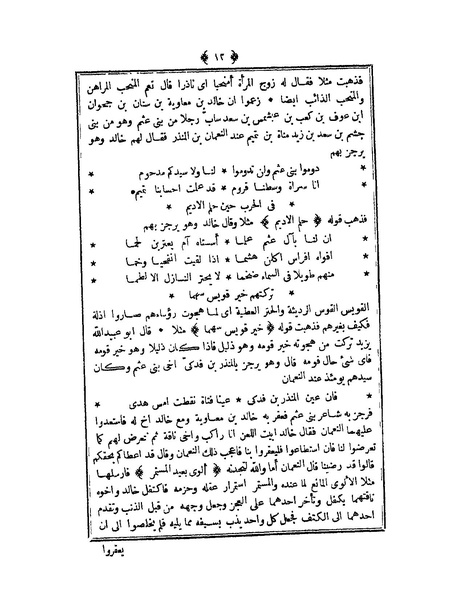 ﴿ ١٢ ﴾
فذهبت مثلا فقال له زوج المرأة أمنحبا اى ناذرا قال نعم المنحب المراهن
والمنحب الذائب ايضا * زعموا ان خالد بن معاوية بن سنان بن جحوان
ابن عوف بن كعب بن عبشمس بن سعد ساب رجلا من بنى عثم وهو من بنى
جشم بن سعد بن زيد مناة بن تميم عند النعمان بن المنذر فقال لهم خالد وهو
يرجز بهم
* دوموا بنى عثم وان تدوموا * لنا ولا سيدكم مدحوم *
* انا سراة وسطنا قروم * قد علمت احسابنا تميم *
* فى الحرب حين حلم الاديم *
فذهب قوله ﴿ حلم الاديم ﴾ مثلا وقال خالد وهو يرجز بهم
* ان لنا بآل عثم علما * أستاه آم يعتزين لحما *
* افواه افراس اكلن هشما * اذا لقيت
* منهم طويلا فى السماء ضخما * لا يحتر النازل الا لطما *
* تركتهم خير قويس سهما *
القويس القوس الرديئة والحتر العطية اى لما هجوت رؤساءهم صاروا اذلة
فكيف بغيرهم فذهبت قوله ﴿ خير قويس سهما ﴾ مثلا * قال ابو عبيدالله
يريد تركت من هجوته خير قومه وهو ذليل فاذا كان ذليلا وهو خير قومه
فاى شئ حال قومه قال وهو يرجز بالمنذر بن فدكى اخى بنى عثم وكان
سيدهم يومئذ عند النعمان
* فان عين المنذر بن فدكى * عينا فتاة نقطت امس هدى *
فرجز به شاعر بنى عثم فعفر به خالد بن معاوية ومع خالد اخ له فاستعدوا
عليهما النعمان فقال خالد ابيت اللعن انا راكب واخى ناقة ثم نتعرض لهم كما
تعرضوا لنا فان استطاعوا فليعقروا بنا فاعجب ذلك النعمان وقال قد اعطاكم بحقكم
قالوا قد رضينا قال النعمان أما والله لتجدنه ﴿ ألوى بعيد المستمر ﴾ فارسلها
مثلا الألوى المانع لما عنده والمستمر استمرار عقله وحزمه فاكتفل خالد واخوه
ناقتهما بكفل وتأخر احدهما على العجز وجعل وجهه من قبل الذنب وتقدم
احدهما الى الكتف فجعل كل واحد يذب بسيفه مما يليه فلم يخلصوا الى ان
يعقروا